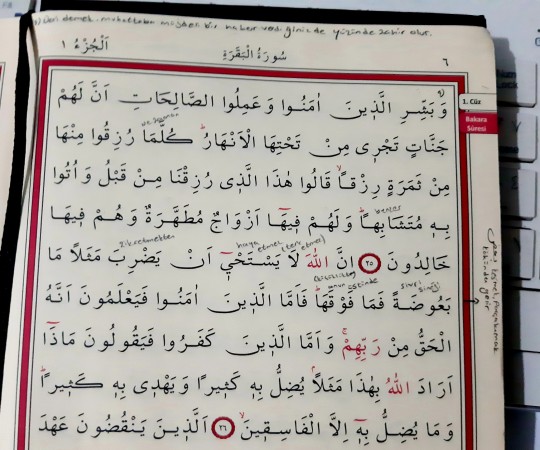 (*) Deri demek. muhattaba müjdeli bir haber verdiğinizde yüzünde zahir olur.
اَلْجُزْءُ ١
سُورَةُ الْبَقَرَةِ
٦
1. Cüz
Bakara
Sûresi
وَبَشِّرِ الَّذ۪ينَ اٰمَنُوا وَعَمِلُوا الصَّالِحَاتِ اَنَّ لَهُمْ
جَنَّاتٍ تَجْر۪ي مِنْ تَحْتِهَا الْاَنْهَارُۜ كُلَّمَا رُزِقُوا مِنْهَا
مِنْ ثَمَرَةٍ رِزْقًاۙ قَالُوا هٰذَا الَّذ۪ي رُزِقْنَا مِنْ قَبْلُ وَاُتُوا
benzer
بِه۪ مُتَشَابِهًاۜ وَلَهُمْ ف۪يهَٓا اَزْوَاجٌ مُطَهَّرَةٌ وَهُمْ ف۪يهَا
خَالِدُونَ ﴿٢٥﴾ اِنَّ اللّٰهَ لَا يَسْتَحْي۪ٓ اَنْ يَضْرِبَ مَثَلًا مَا
üstünde
بَعُوضَةً فَمَا فَوْقَهَاۜ فَاَمَّا الَّذ۪ينَ اٰمَنُوا فَيَعْلَمُونَ اَنَّهُ
الْحَقُّ مِنْ رَبِّهِمْۚ وَاَمَّا الَّذ۪ينَ كَفَرُوا فَيَقُولُونَ مَاذَٓا
اَرَادَ اللّٰهُ بِهٰذَا مَثَلًاۢ يُضِلُّ بِه۪ كَث۪يرًا وَيَهْد۪ي بِه۪ كَث۪يرًاۜ
وَمَا يُضِلُّ بِه۪ٓ اِلَّا الْفَاسِق۪ينَۙ ﴿٢٦﴾ اَلَّذ۪ينَ يَنْقُضُونَ عَهْدَ